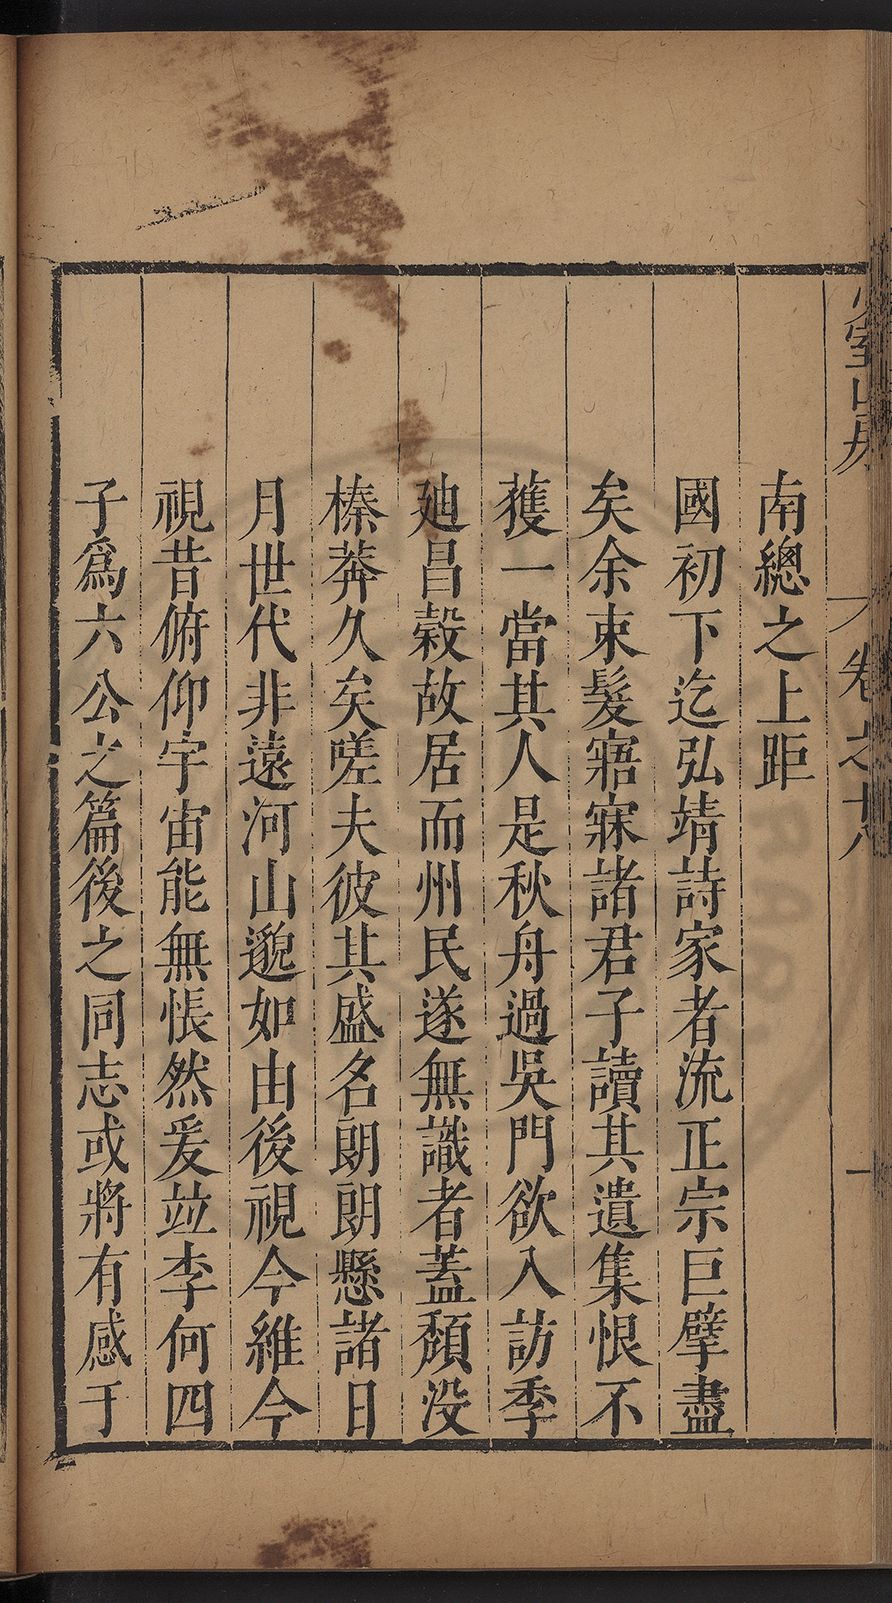 少室山房 卷之十八 一
南總之上距
國初下迄弘靖詩家者流正宗巨擘盡
矣余束髮寤寐諸君子讀其遺集恨不
獲一當其人是秋舟過吳門欲入訪季
廸昌穀故居而州民遂無識者蓋頹没
榛莽久矣嗟夫彼其盛名朗朗懸諸日
月世代非遠河山邈如由後視今維今
視昔俯仰宇宙能無悵然爰竝李何四
子爲六公之篇後之同志或將有感于